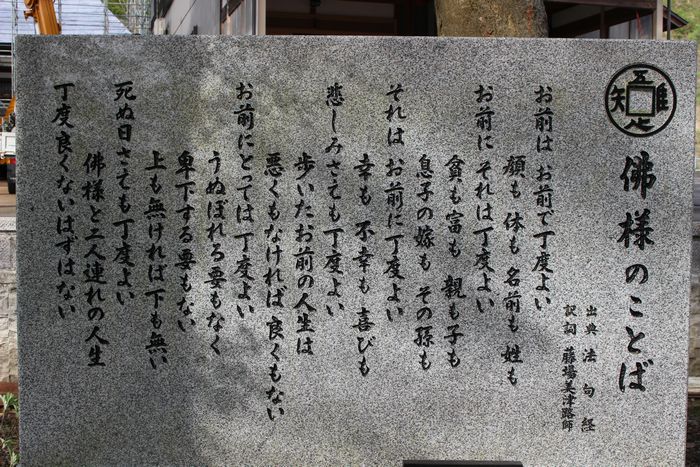 佛様のことば
出典 法句経
訳詞 藤場美津路師
お前は お前で丁度よい
顔も 体も 名前も 姓も
お前に それは丁度よい
貧も 富も 親も 子も
息子の嫁も その孫も
それは お前に丁度よい
幸も 不幸も 喜びも
悲しみさえも丁度よい
歩いたお前の人生は
悪くもなければ 良くもない
お前にとっては 丁度よい
うぬぼれる要もなく
卑下する要もない
上も無ければ 下も無い
死ぬ日さえも丁度よい
佛様と二人連れの人生
丁度良くないはずはない
五 隹 疋 矢